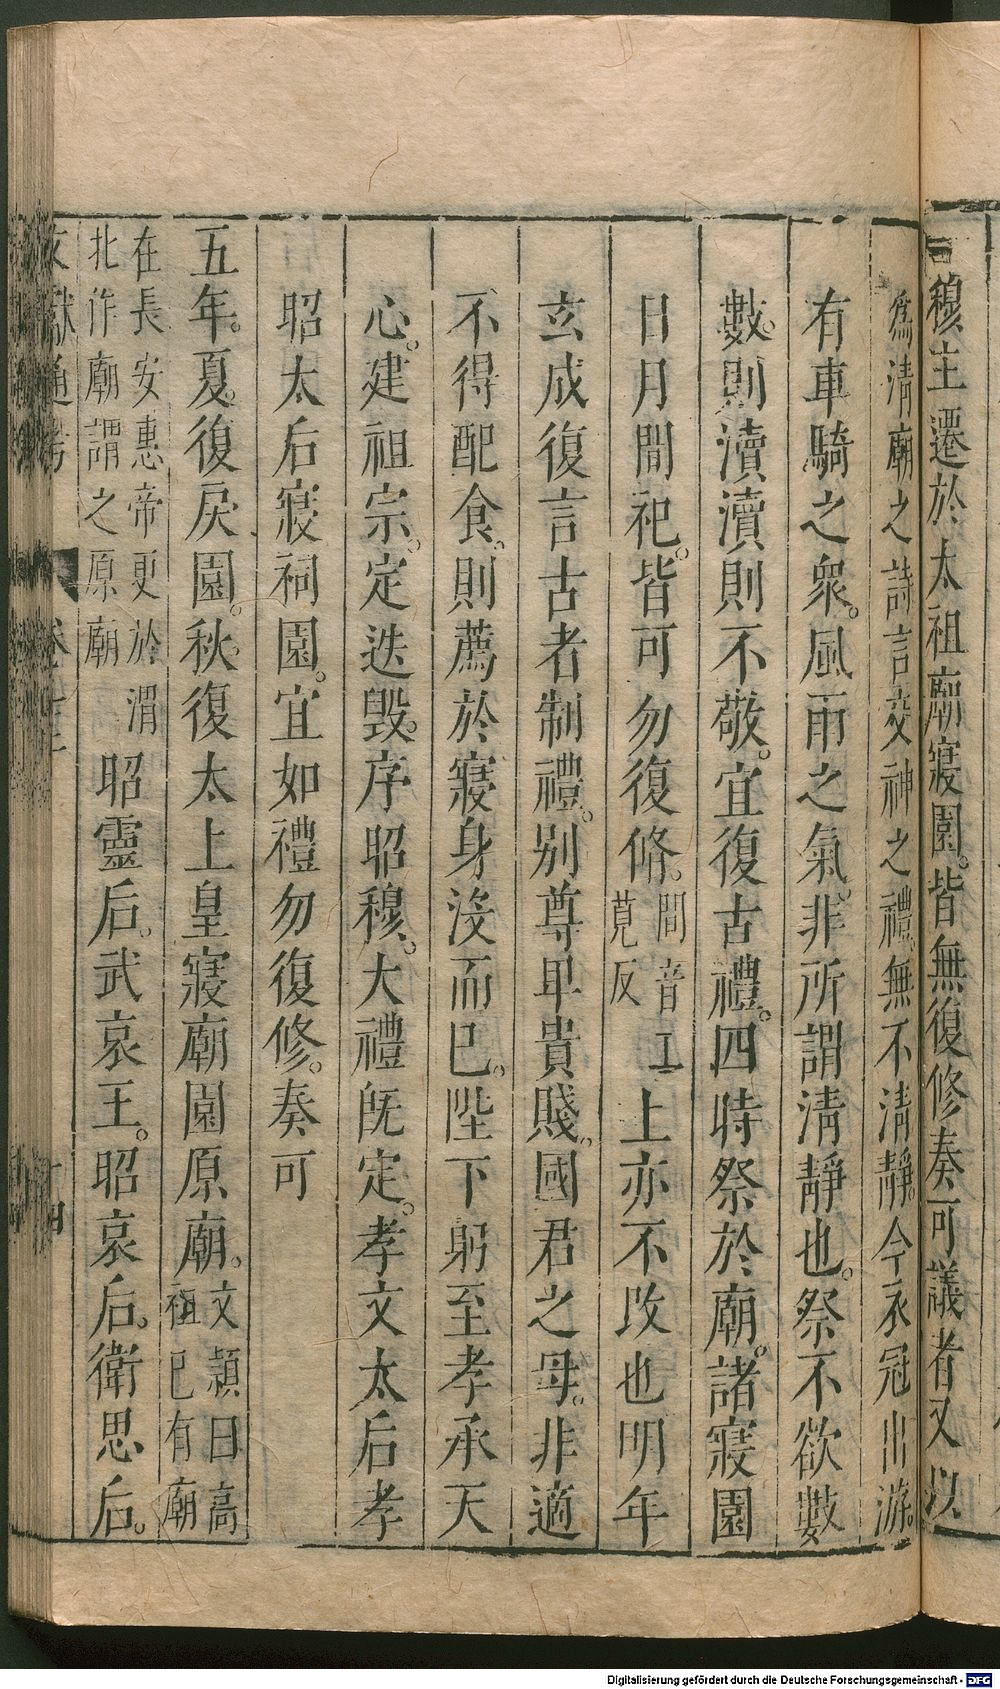 穆主遷於太祖廟寢園。皆無復修奏可議者又以
為清廟之詩言交神之禮。無不清靜。今衣冠出游。
有車騎之衆。風雨之氣。非所謂清靜也。祭不欲數
數。則瀆瀆則不敬。宜復古禮。四時祭於廟。諸寢園
日月間祀。皆可勿復脩。間音工莧反上亦不改也明年
玄成復言古者制禮。別尊卑貴賤。國君之母。非適
不得配食。則薦於寢身没而已。陛下躬至孝承天
心。建祖宗。定迭毀。序昭穆。大禮旣定。孝文太后孝
昭太后寢祠園。宜如禮勿復修。奏可
五年。夏。復戾園。秋。復太上皇寢廟園原廟。文潁曰高祖已有廟
在長安惠帝更於渭北作廟謂之原廟昭靈后。武哀王。昭哀后。衛思后。
文獻通考 卷 十四
Digitalisierung gefördert durch die Deutsche Forschungsgemeinschaft - DFG